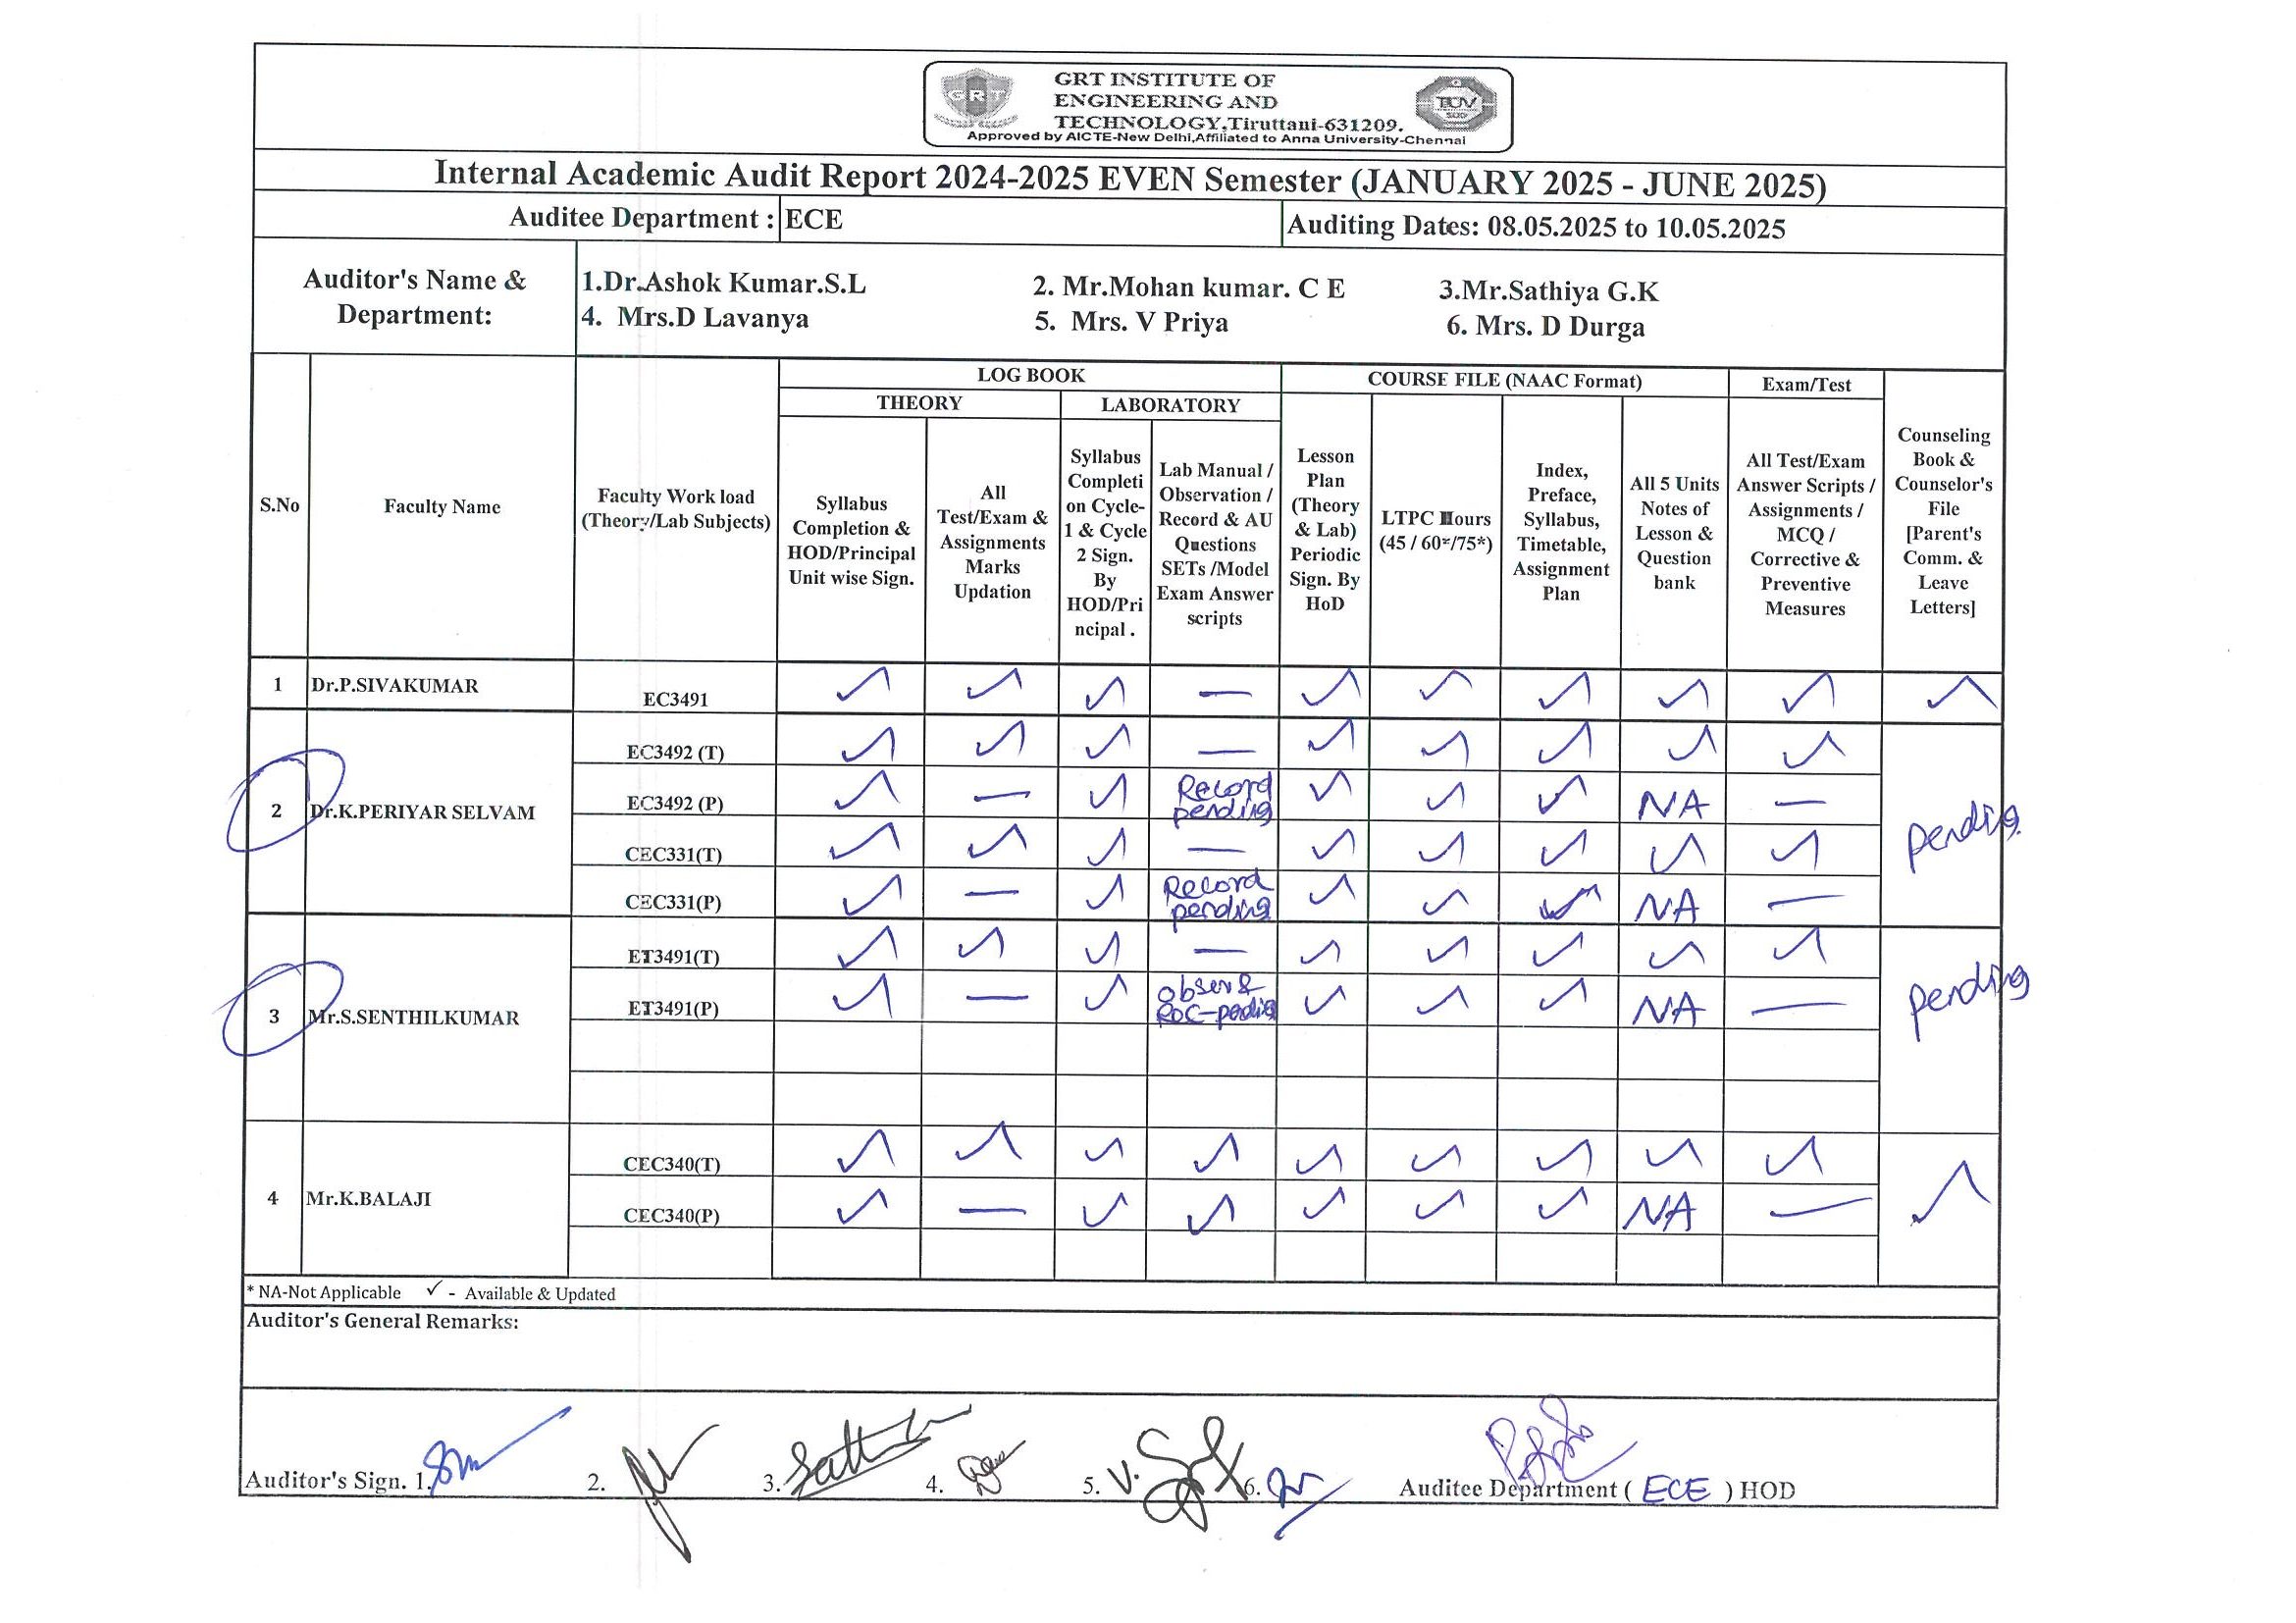 GRT INSTITUTE OF
ENGINEERING AND
TECHNOLOGY,Tiruttani-631209.
Approved by AICTE-New Delhi,Affiliated to Anna University-Chennai
GRT
TUV
SUD
Internal Academic Audit Report 2024-2025 EVEN Semester (JANUARY 2025 - JUNE 2025)
Auditee Department : ECE Auditing Dates: 08.05.2025 to 10.05.2025
Auditor's Name &
Department:
1.Dr.Ashok Kumar.S.L 2. Mr.Mohan kumar. C E 3.Mr.Sathiya G.K
4. Mrs.D Lavanya 5. Mrs. V Priya 6. Mrs. D Durga
S.No
Faculty Name
Faculty Work load
(Theory/Lab Subjects)
LOG BOOK
THEORY
LABORATORY
Syllabus
Completion &
HOD/Principal
Unit wise Sign.
All
Test/Exam &
Assignments
Marks
Updation
Syllabus
Completi
on Cycle-
1 & Cycle
2 Sign.
By
HOD/Pri
ncipal .
Lab Manual /
Observation /
Record & AU
Questions
SETs /Model
Exam Answer
scripts
COURSE FILE (NAAC Format)
Lesson
Plan
(Theory
& Lab)
Periodic
Sign. By
HoD
LTPC Hours
(45 / 60*/75*)
Index,
Preface,
Syllabus,
Timetable,
Assignment
Plan
All 5 Units
Notes of
Lesson &
Question
bank
Exam/Test
All Test/Exam
Answer Scripts /
Assignments /
MCQ /
Corrective &
Preventive
Measures
Counseling
Book &
Counselor's
File
[Parent's
Comm. &
Leave
Letters]
1 Dr.P.SIVAKUMAR EC3491 ✓ ✓ ✓ — ✓ ✓ ✓ ✓ ✓ ✓
2 Dr.K.PERIYAR SELVAM
EC3492 (T) ✓ ✓ ✓ — ✓ ✓ ✓ ✓ ✓
EC3492 (P) ✓ — ✓ Record pending ✓ ✓ ✓ NA —
CEC331(T) ✓ ✓ ✓ — ✓ ✓ ✓ ✓ ✓
CEC331(P) ✓ — ✓ Record pending ✓ ✓ ✓ NA —
pending
3 Mr.S.SENTHILKUMAR
ET3491(T) ✓ ✓ ✓ — ✓ ✓ ✓ ✓ ✓
ET3491(P) ✓ — ✓ obser & ✓ ✓ ✓ NA —
pending
4 Mr.K.BALAJI
CEC340(T) ✓ ✓ ✓ ✓ ✓ ✓ ✓ ✓ ✓
CEC340(P) ✓ — ✓ ✓ ✓ ✓ ✓ NA —
✓
* NA-Not Applicable ✓ - Available & Updated
Auditor's General Remarks:
Auditor's Sign. 1. 2. 3. 4. 5. V. 6. Auditee Department ( ECE ) HOD